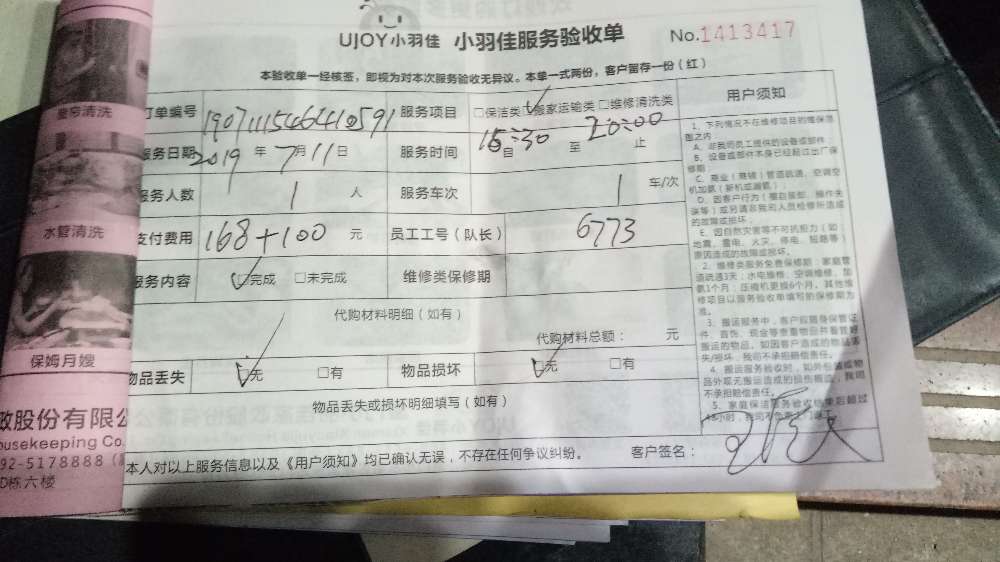 UJOY小羽佳 小羽佳服务验收单 No.1413417
本验收单一经核签，即视为对本次服务验收无异议。本单一式两份，客户留存一份（红）
订单编号 1907111546410591 服务项目 □保洁类 ☑搬家运输类 □维修清洗类 用户须知
服务日期 2019年7月11日 服务时间 自 至 20:00 止
服务人数 1 人 服务车次 1 车/次
支付费用 168+100 元 员工工号（队长） 6773
服务内容 ☑完成 □未完成 维修类保修期
代购材料明细（如有）
代购材料总额： 元
物品丢失 ☑无 □有 物品损坏 ☑无 □有
物品丢失或损坏明细填写（如有）
本人对以上服务信息以及《用户须知》均已确认无误，不存在任何争议纠纷。 客户签名：
1、下列情况不在维修项目的维保范
围之内
A、非我司员工提供的设备或部件
B、设备或部件本身已经超过出厂保
修期
C、商业（商铺）管道疏通、空调空
机加氨（新机或漏氨）
D、因客户行为（擅自装卸、操作失
误等）或另请非我司人员检修所造成
的故障或损坏
E、因自然灾害等不可抗拒力（如
地震、雷电、火灾、停电、短路等）
原因造成的故障或损坏。
2、维修类服务免费保修期：家庭管
道疏通3天；水电维修、空调维修、加
氨1个月；压缩机更换6个月。其他维
修项目以服务验收单填写的保修期为
准。
3、搬运服务中，客户应随身保管证
件、首饰、现金等贵重物品并看管好
搬运的物品，如因客户造成的物品丢
失/损坏，我司不承担赔偿责任。
4、搬运服务验收时，如外包装或物
品外观无搬运造成的损伤痕迹，我司
不承担赔偿责任。
5、家庭保洁服务验收结束后超过
窗帘清洗
水管清洗
保姆月嫂
政股份有限公
ousekeeping Co.
92-5178888
D栋六楼